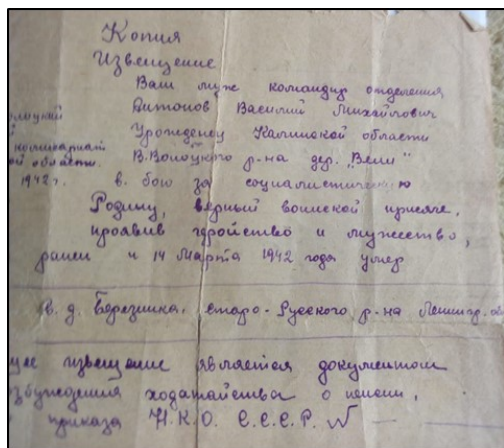 Копия
Извещение
Ваш муж командир отделения
Антонов Василий Михайлович
Уроженец Калинской области
В.Волоцкого р-на дер. "Вели"
1942 г. в бою за социалистическую
Родину, верный воинской присяге,
проявив геройство и мужество,
ранен и 14 Марта 1942 года умер
в. д. Березинка, старо-Русского р-на Ленингр. об
щее извещение является документом
збуждения ходатайства о пенсии,
приказа Н.К.О. С.С.С.Р. №